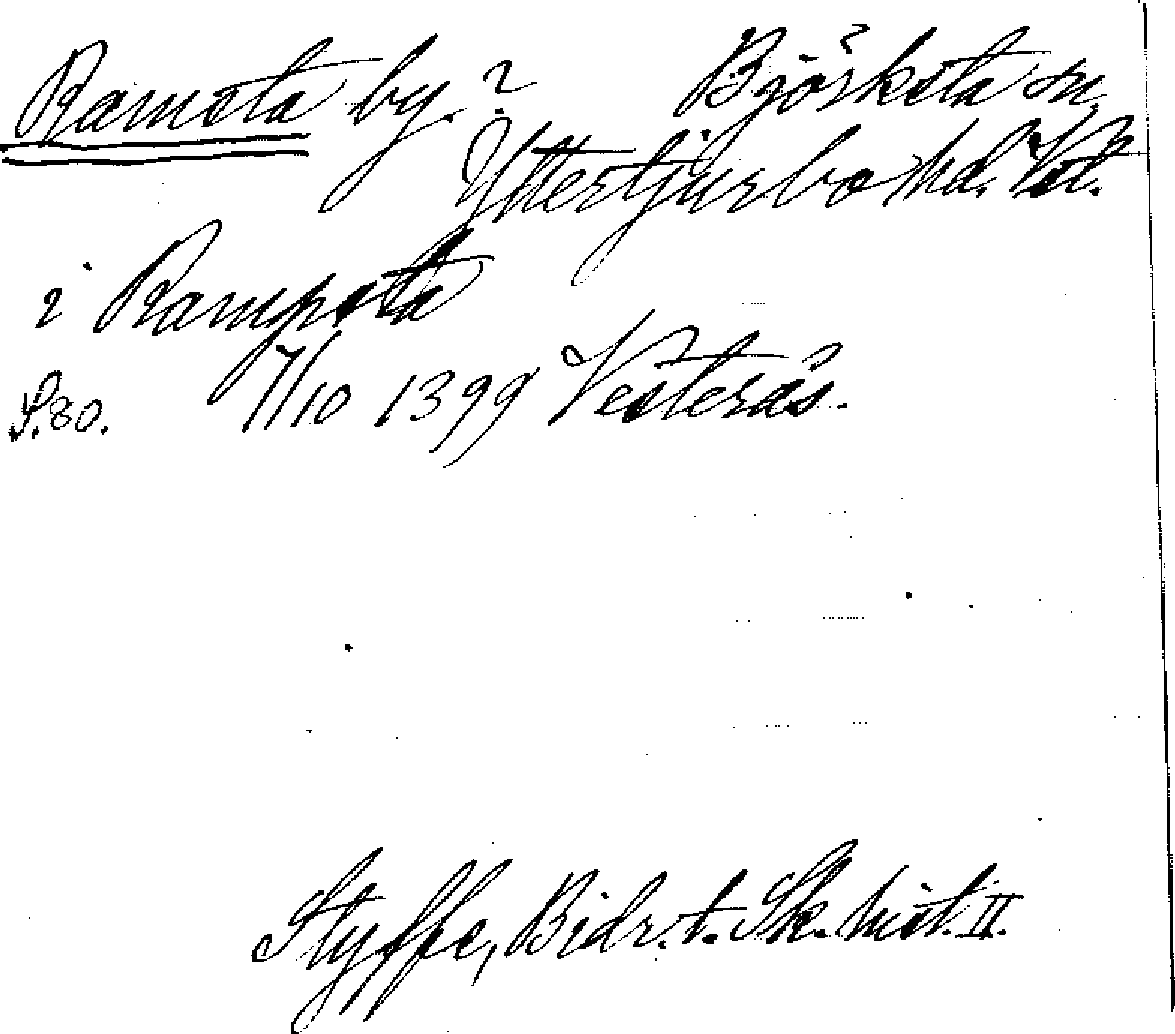 Ramsta by.? Björksta sn,
Yttertjurbo hd. Vstm.
i Rampsta
S.80. 7/10 1399 Vesterås.
Styffe, Bidr. t. Sk. hist. II.